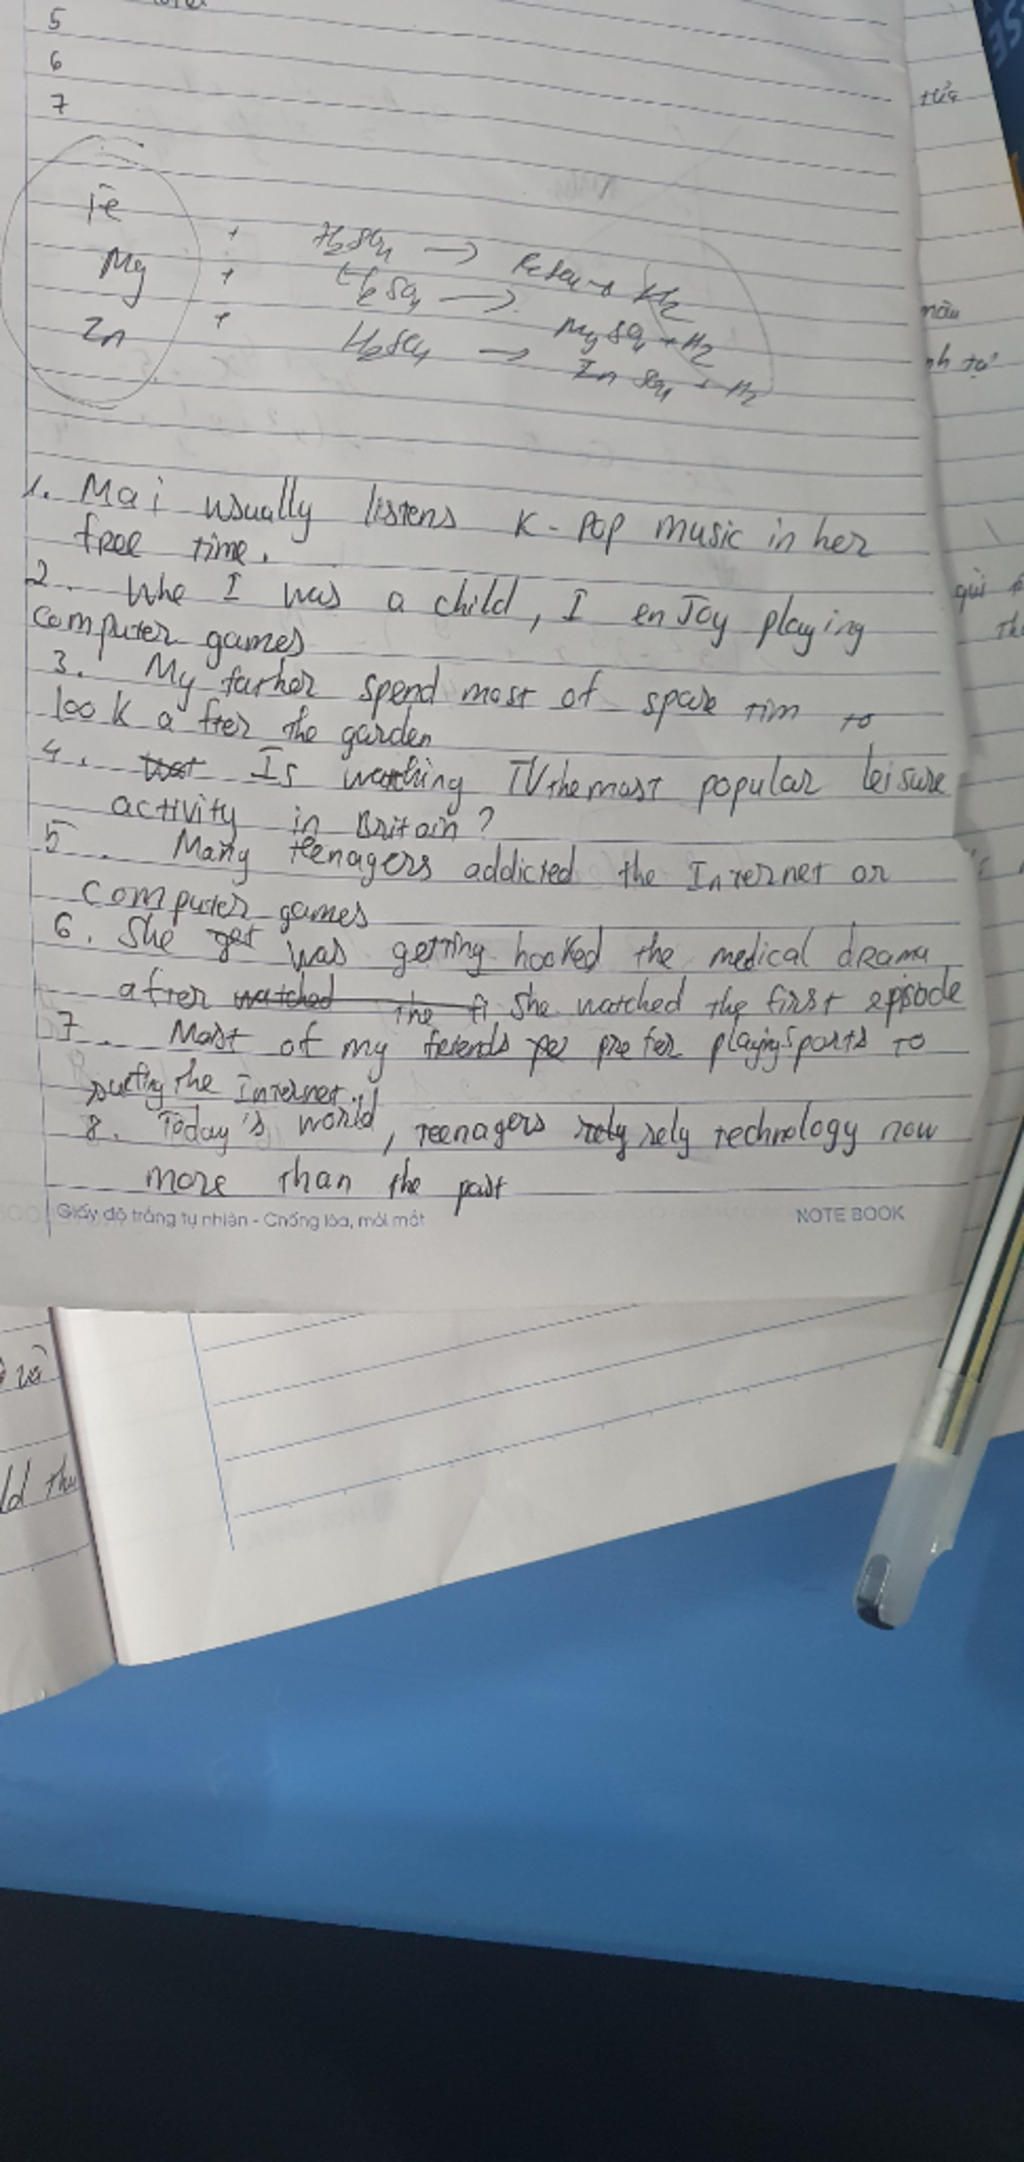 5
6
7
tửa
Fe + H2SO4 → FeSO4 + H2
Mg + H2SO4 → MgSO4 + H2
Zn + H2SO4 → ZnSO4 + H2
màu
nh tại
1. Mai usually listens K-Pop music in her
free time.
2. Whe I was a child, I enJoy playing
computer games
3. My father spend most of spare tim to
look after the garden
4. Wat Is watching TV the most popular leisure
activity in Britain?
5. Many teenagers addicted the Internet or
computer games
6. She get was getting hooked the medical drama
after watched the fi She watched the first episode
7. Most of my friends per prefer playing sports to
surfing the Internet.
8. Today's world, teenagers rely rely technology now
more than the past
Giấy độ trắng tự nhiên - Chống lóa, mỏi mắt
NOTE BOOK
và
ld thu